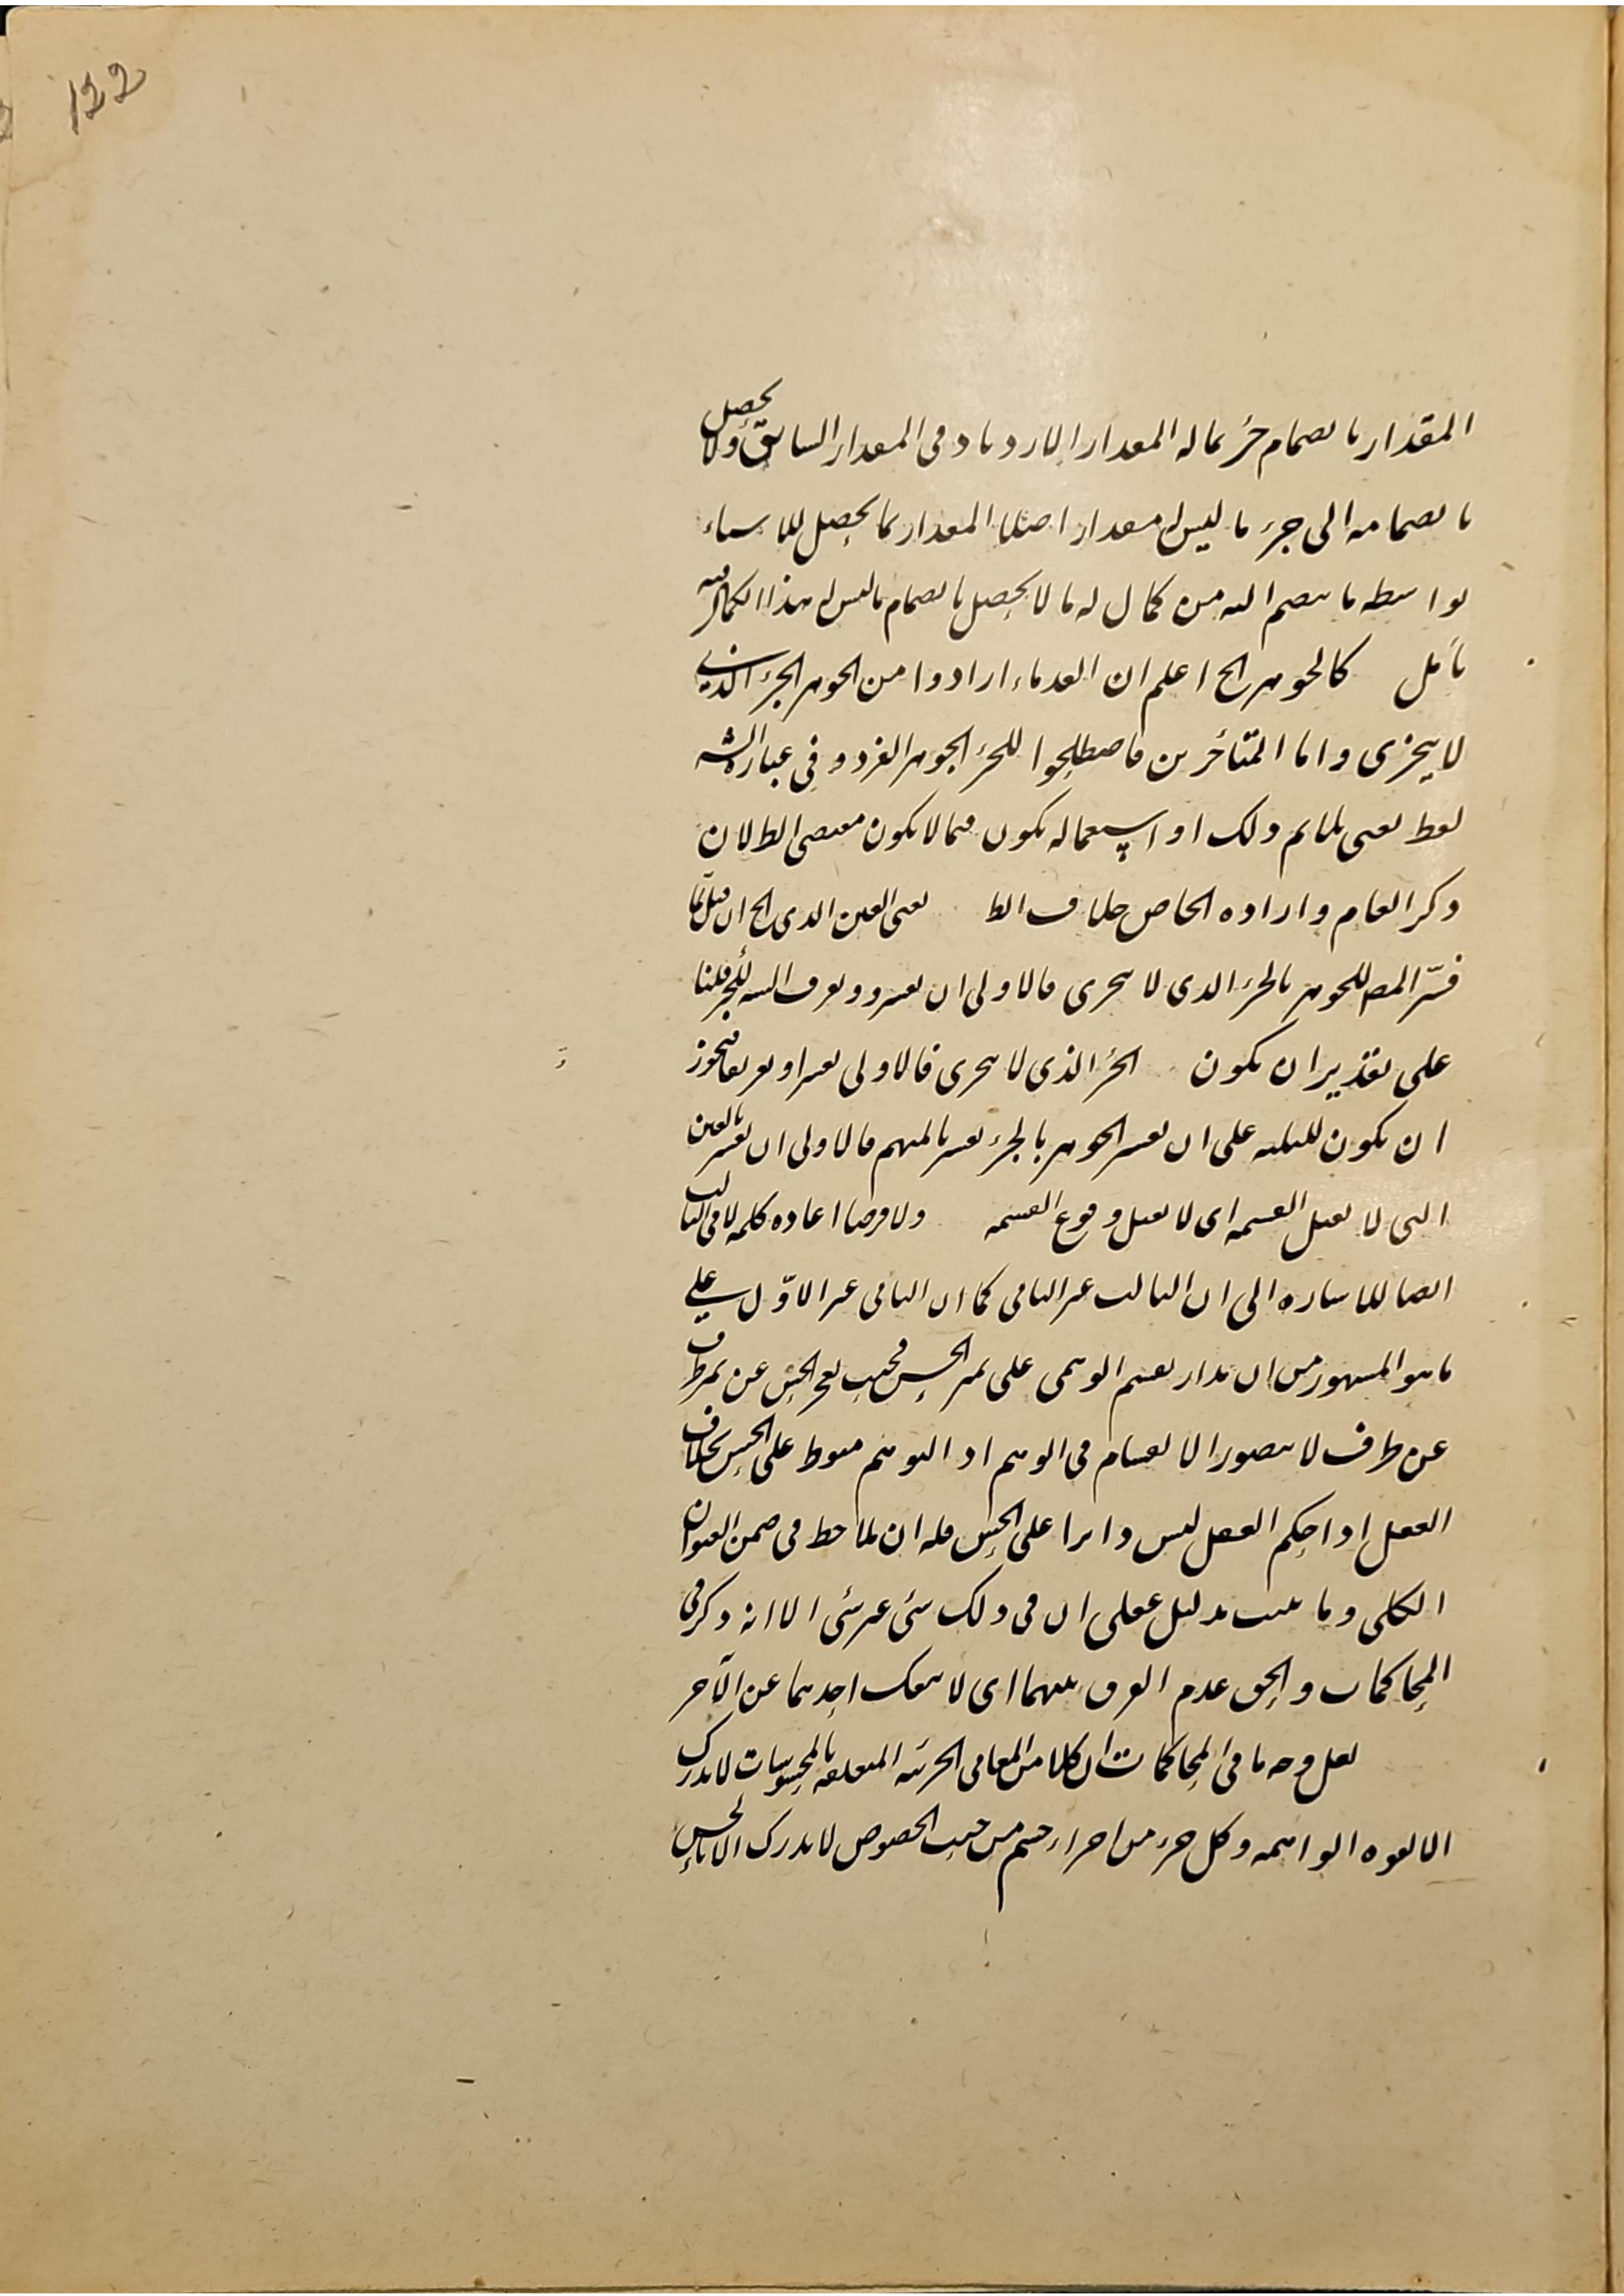 122
المقدار بانضمام جزء ماله المقدار الازدياد فى المقدار السابق ولا يحصل
بانضمامه الى جزء ما ليس له مقدار اصلا المقدار كما يحصل للاشياء
بواسطه ما ينضم اليه من كمال له ما لا يحصل بانضمام ما ليس له هذا الكمال فيه
تأمل كالجوهر الخ اعلم ان القدماء ارادوا من الجوهر الجزء الذى
لا يتجزى واما المتأخرين فاصطلحوا للجزء الجوهر الفرد و فى عباره الشه
لفظ يعنى يلايم ذلك او استعماله يكون فيما لا يكون مقتضى الظ لان
ذكر العام واراده الخاص خلاف الظ يعنى العين الذى الخ ان قيل لما
فسّر المص للجوهر بالجزء الذى لا يتجزى فالاولى ان يفسر و يعرف الشه للجزء قلنا
على تقدير ان يكون الجزء الذى لا يتجزى فالاولى تفسيرا و تعريفا فيجوز
ان يكون للتنبيه على ان تفسير الجوهر بالجزء تفسير بالمبهم فالاولى ان يفسر بالعين
التى لا تقبل القسمه اى لا يقبل وقوع القسمه ولا فرضا اعاده كلمه لا فى الثالث
ايضا للاشاره الى ان الثالث غير الثانى كما ان الثانى غير الاوّل على
ما هو المشهور من ان مدار تقسيم الوهمى على تميز الحس فحيث يعجز الحس عن تميز طرف
عن طرف لا يتصور الانقسام فى الوهم اذ التوهم منوط على الحس بخلاف
العقل اذ احكم العقل ليس دايرا على الحس فله ان يلاحظ فى ضمن العنوان
الكلى و ما يثبت بدليل عقلى ان فى ذلك شئ غير شئ الا انه ذكر فى
المحاكمات والحق عدم الفرق بينهما اى لا ينفك احدهما عن الآخر
لعل وجه ما فى المحاكمات ان كلا من المعانى الجزئيه المتعلقه بالمحسوسات لا يدرك
الا بالقوه الواهمه وكل جزء من اجزاء جسم من حيث الخصوص لا يدرك الا بالحس